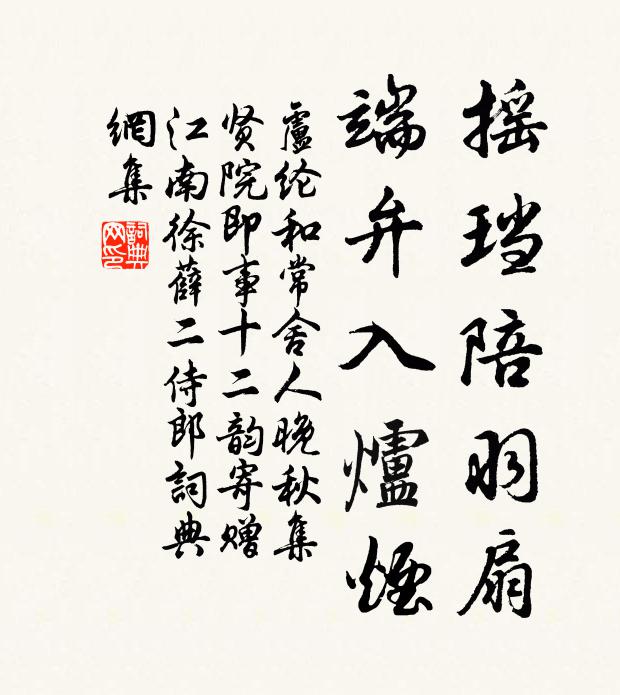 摇珰陪羽扇
端弁入爐煙
盧纶和常舍人晚秋集
贤院即事十二韵寄赠
江南徐薛二侍郎詞典
網集
詞典网印